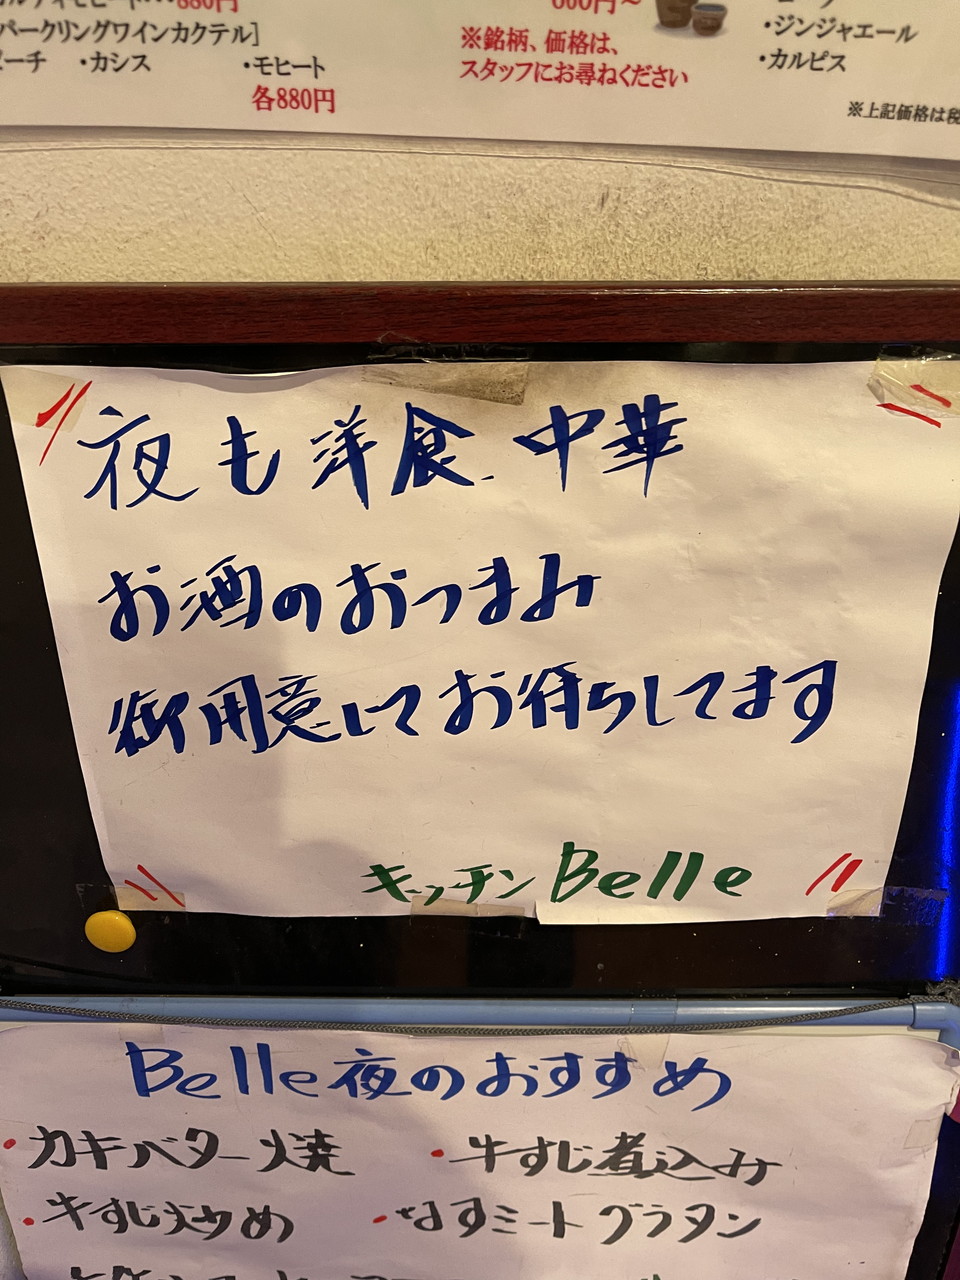 880円
パークリングワインカクテル]
ーチ ・カシス ・モヒート
各880円
600円~
※銘柄、価格は、
スタッフにお尋ねください
・ジンジャエール
・カルピス
※上記価格は税
夜も洋食 中華
お酒のおつまみ
御用意してお待ちしてます
キッチン Belle
Belle夜のおすすめ
・カキバター焼 ・牛すじ煮込み
・牛すじ炒め ・なすミートグラタン